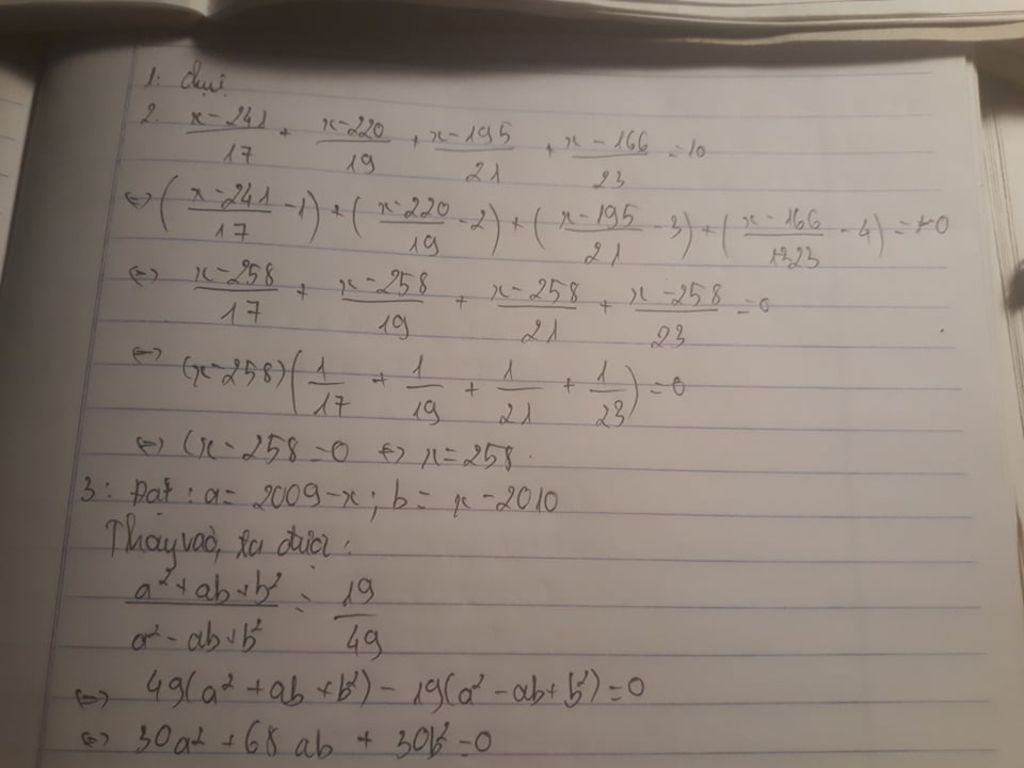 1: chịu.
2. (x-241)/17 + (x-220)/19 + (x-195)/21 + (x-166)/23 = 10
⇔ ((x-241)/17 - 1) + ((x-220)/19 - 2) + ((x-195)/21 - 3) + ((x-166)/23 - 4) = 0
⇔ (x-258)/17 + (x-258)/19 + (x-258)/21 + (x-258)/23 = 0
⇔ (x-258)(1/17 + 1/19 + 1/21 + 1/23) = 0
⇔ (x-258=0 ⇔ x=258.
3: Đặt: a= 2009-x; b= x-2010
Thay vào, ta được:
(a²+ab+b²)/(a²-ab+b²) = 19/49
⇔ 49(a²+ab+b²) - 19(a²-ab+b²)=0
⇔ 30a²+68ab + 30b²=0